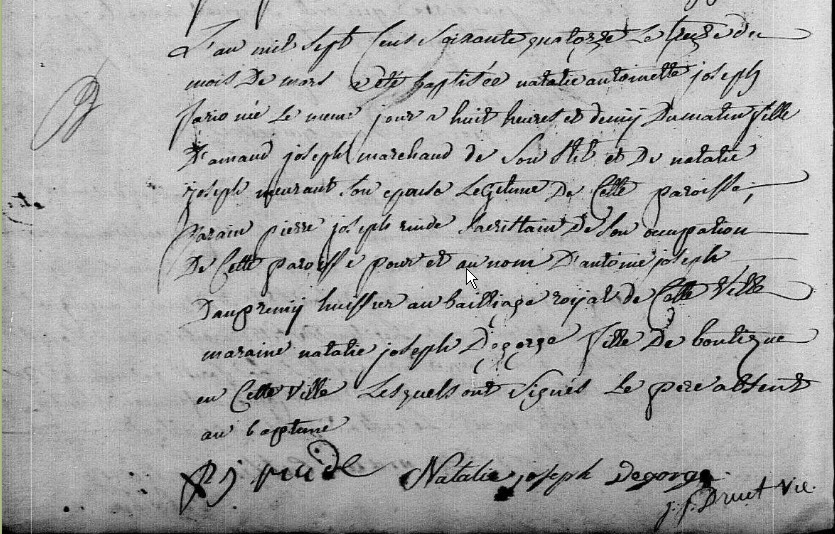 L'an mil sept cens soixante quatorze le treize du
mois de mars a été baptisée natalie antoinette joseph
née le meme jour a huit heures et demy du matin fille
D'amand joseph marchand de son stil et de natalie
joseph meurant son epouse legitime De Cette paroisse,
parain pierre joseph ruide sacristain De son occupation
De Cette paroisse pour et au nom D'antoine joseph
Dauprémy huissier au bailliage royal de Cette Ville
maraine natalie joseph Degorge fille De boutique
en Cette Ville Lesquels ont signés Le pere absent
au baptême
P j ruide Natalie joseph Degorge
j. j. Druet Vic.